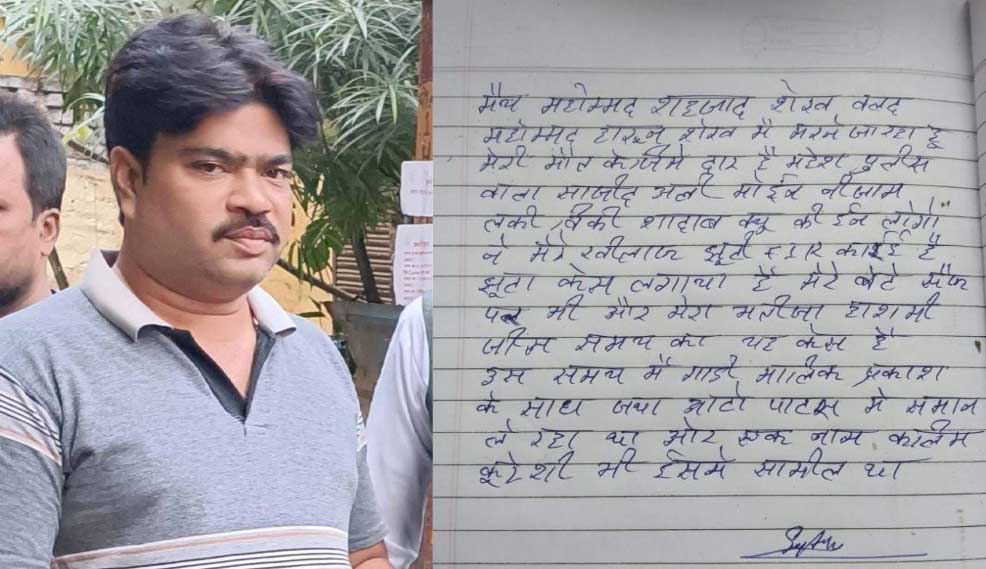 मैय महोम्मद शहजाद शेख वलद
महोम्मद हारून शेख मै मरने जा रहा हू
मेरी मौत के जिमे दार है महेश पुलीस
वाला साजीद अली मोईन नीजाम
लकी विकी शाहाब क्यू की ईन लोगो
ने मेरे खीलाफ झूटी FIR काई है
झूटा केस लगाया है मेरे बेटे
पर भी और मेरा भतीजा हाशमी
जीस समय का यह केस है
इस समय मै गाडी मालिक प्रकाश
के साथ जया ओटो पाटस मे समान
ले रहा था ओर एक नाम कालिम
कूरेशी भी ईसमे सामील था